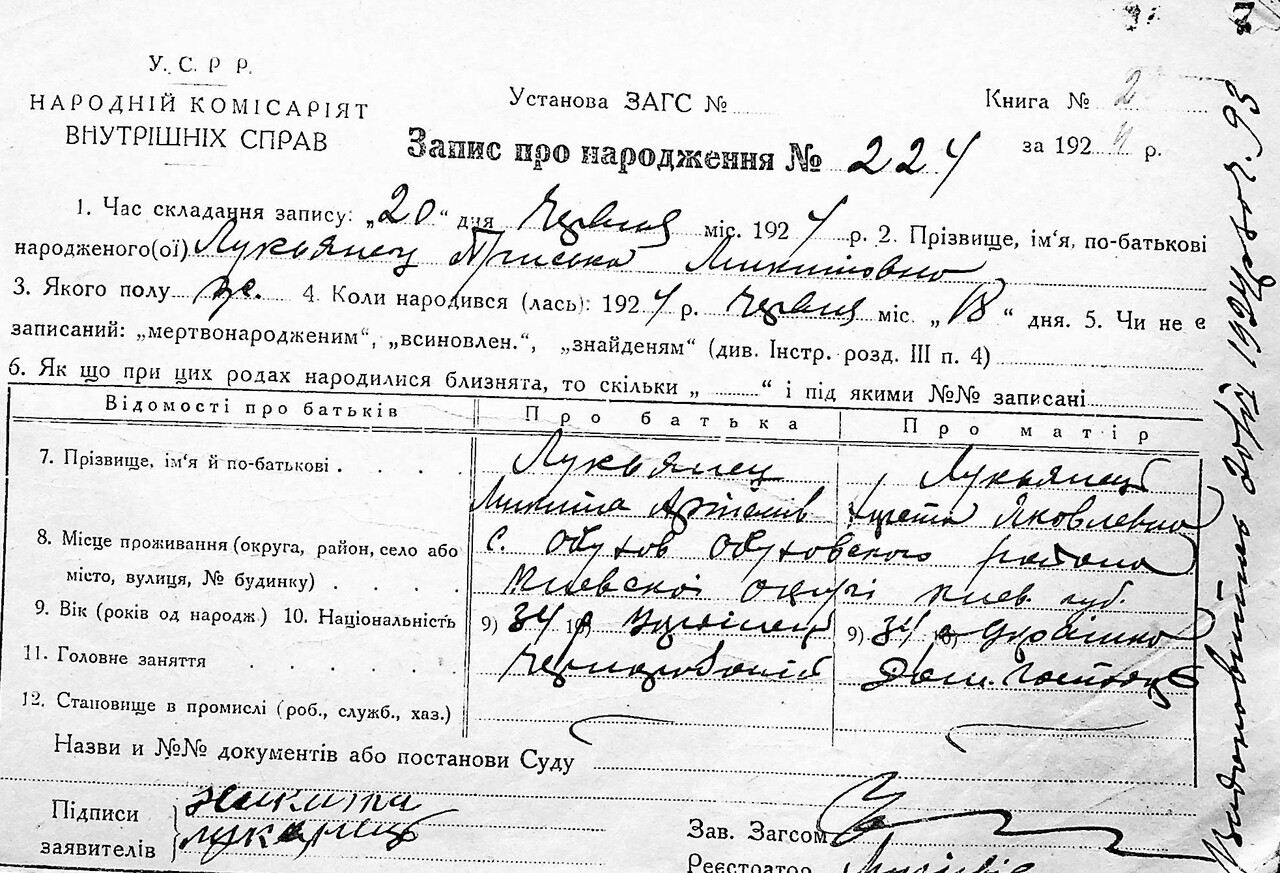 У. С. Р. Р.
НАРОДНІЙ КОМІСАРІЯТ
ВНУТРІШНІХ СПРАВ
Установа ЗАГС №
Книга № 2
за 1924 р.
Запис про народження № 224
1. Час складання запису: „20“ дня Червня міс. 1924 р. 2. Прізвище, ім‘я, по-батькові
народженого(ої) Лукьянец Микитовна
3. Якого полу ж. 4. Коли народився (лась): 1924 р. Червня міс. „18“ дня. 5. Чи не є
записаний: „мертвонародженим“, „всиновлен.“, „знайденям“ (див. Інстр. розд. III п. 4)
6. Як що при цих родах народилися близнята, то скільки „ “ і під якими №№ записані
Відомості про батьків Про батька Про матір
7. Прізвище, ім‘я й по-батькові . . . . Лукьянец Лукьянець
Микита Яковлевна
8. Місце проживання (округа, район, село або с. Обухов Обуховского района
місто, вулиця, № будинку) . . . . Киевскої округі Киев. губ.
9. Вік (років од народж.) 10. Національність 9) 34 10) Украінець 9) 34 10) Украінка
11. Головне заняття . . . . . Чернороботій Дом.
12. Становище в промислі (роб., служб., хаз.)
Назви и №№ документів або постанови Суду
Підписи Никита
заявителів Лукянець
Зав. Загсом
Реєстратор